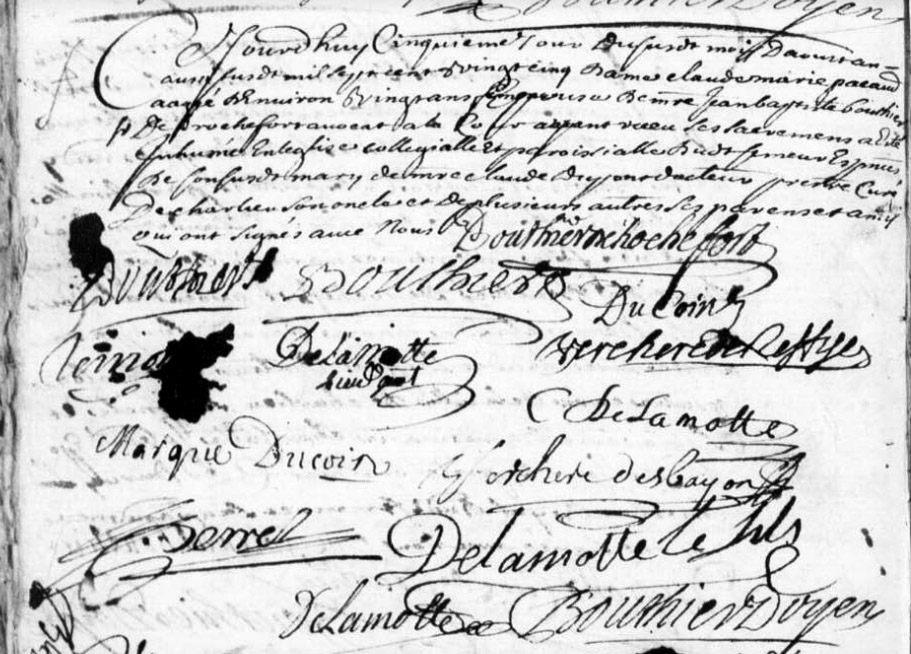 Bouthier Doyen
Aujourdhuy Cinquieme Jour dususdt mois Daoust an
susdt mil sept cent & vingt cinq Dame claude marie pacaud
aagée Denviron & vingt ans Epouse De mre Jean baptiste bouthier
De Rochefort avocat a la Cour ayant receu ses sacremens a Eté
enhumée En leglise collegialle Et paroissialle Dudt semeur En pnce
De son susdt mary de mre claude Dupont docteur prestre Curé
De charlieu son oncle et De plusieurs autres ses parens et amis
qui ont signés avec Nous
Bouthier de Rochefort
Bouthier Bouthier
Du Coin
Delamotte verchere de Reffye
De Lamotte
Marque Ducoin
verchere desbayon
Perret Delamotte le fils
DeLamotte Bouthier Doyen